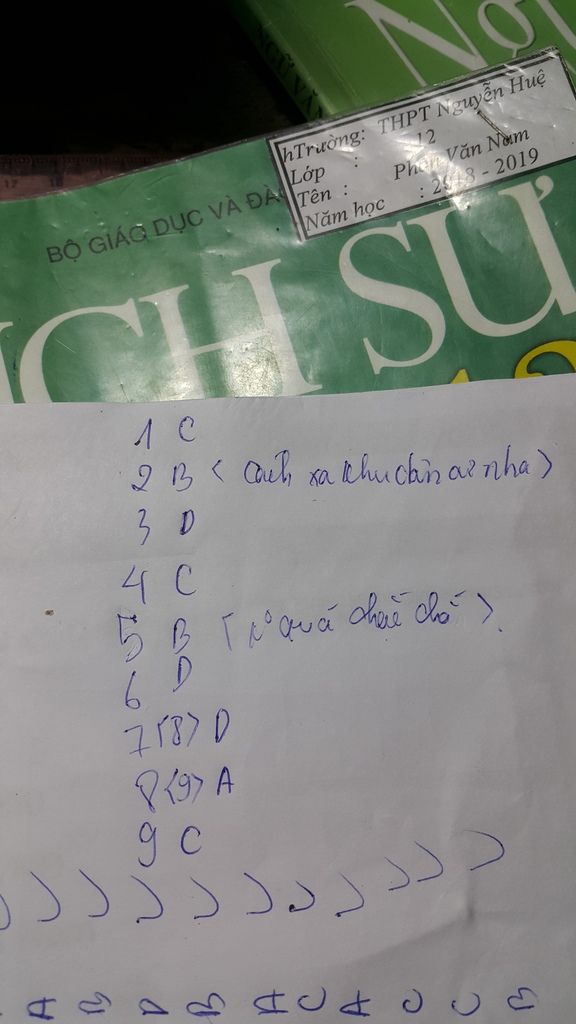 NGỮ VĂN
hTrường: THPT Nguyễn Huệ
Lớp : 12
Tên : Phan Văn Nam
Năm học : 2018 - 2019
BỘ GIÁO DỤC VÀ ĐÀ
ỊCH SỬ
12
1 C
2 B < cách xa khu dân cư nha >
3 D
4 C
5 B quá chế >
6 D
7 <8> D
8 <9> A
9 C
A B D B A C A C C B